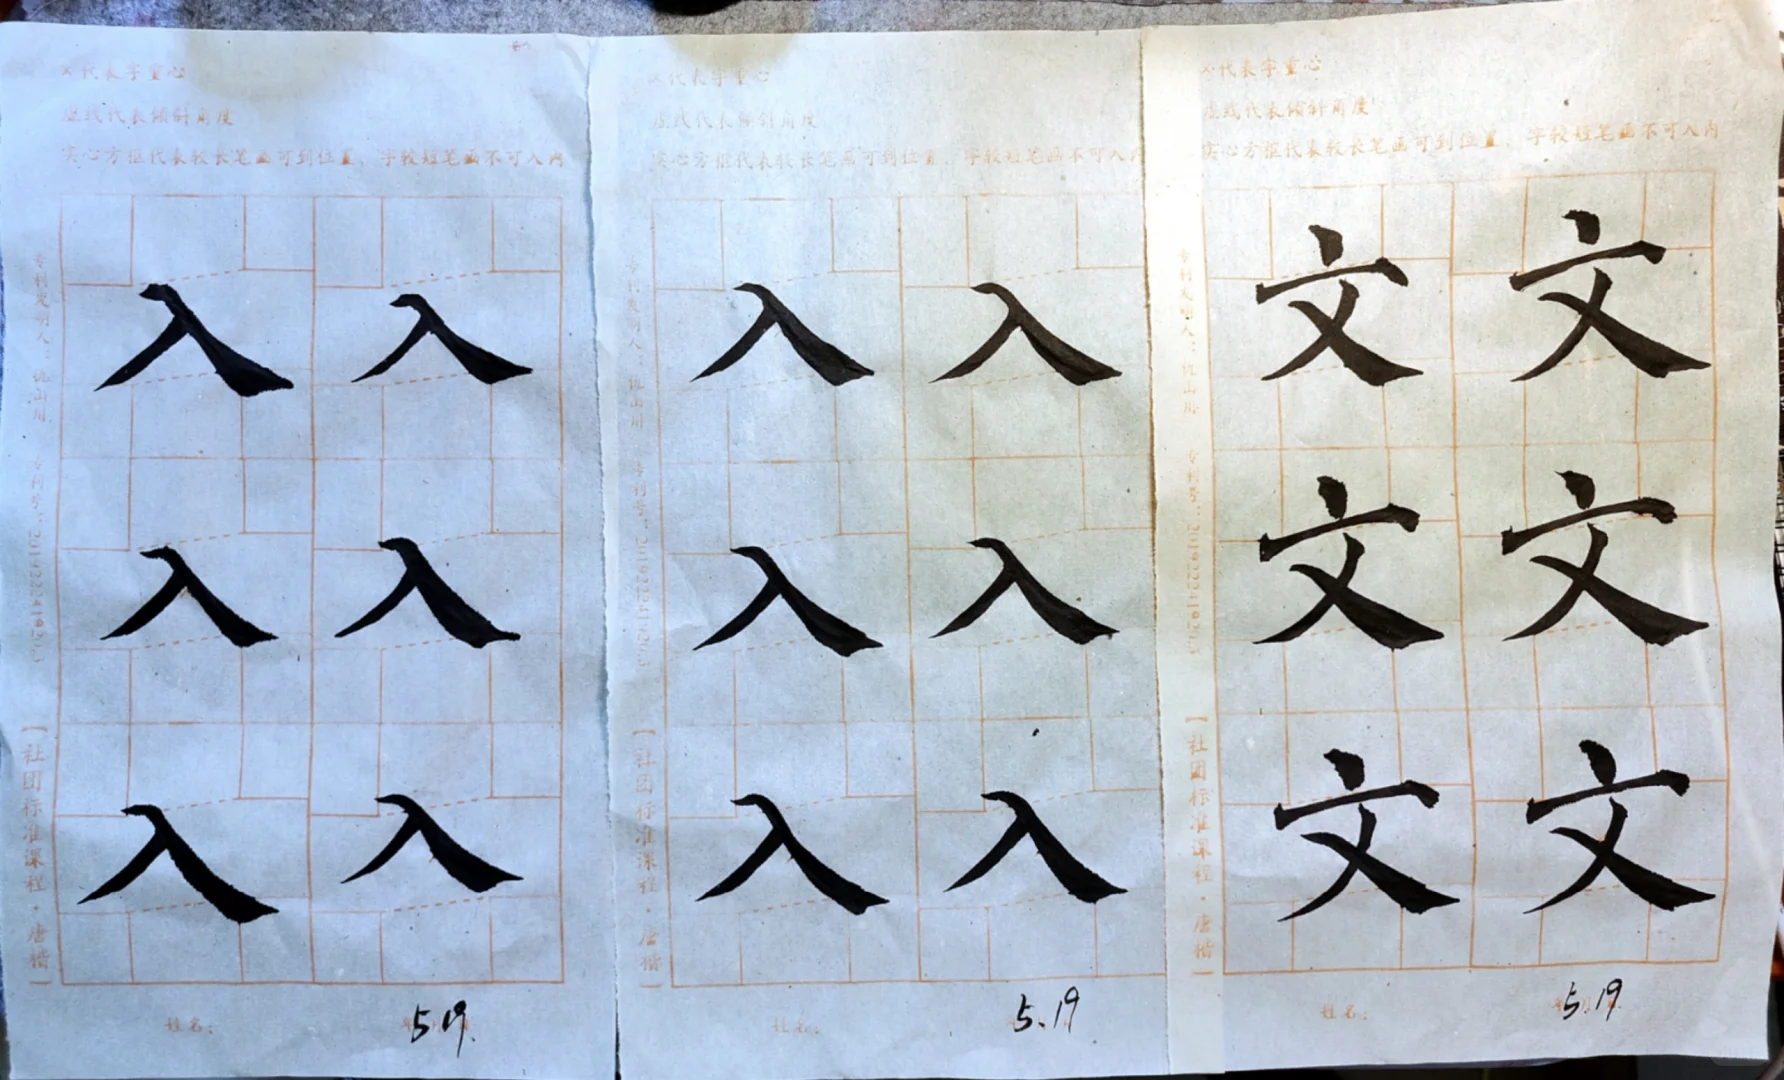 ×代表字重心
虚线代表倾斜角度
实心方框代表较长笔画可到位置,字较短笔画不可入内
入 入
入 入
入 入
专利发明人:仇山川
【社团标准课程·唐楷】
姓名:
5.19.
×代表字重心
虚线代表倾斜角度
实心方框代表较长笔画可到位置,字较短笔画不可入内
入 入
入 入
入 入
专利发明人:仇山川
【社团标准课程·唐楷】
姓名:
5.19
×代表字重心
虚线代表倾斜角度
实心方框代表较长笔画可到位置,字较短笔画不可入内
文 文
文 文
文 文
专利发明人:仇山川
【社团标准课程·唐楷】
姓名:
5.19.